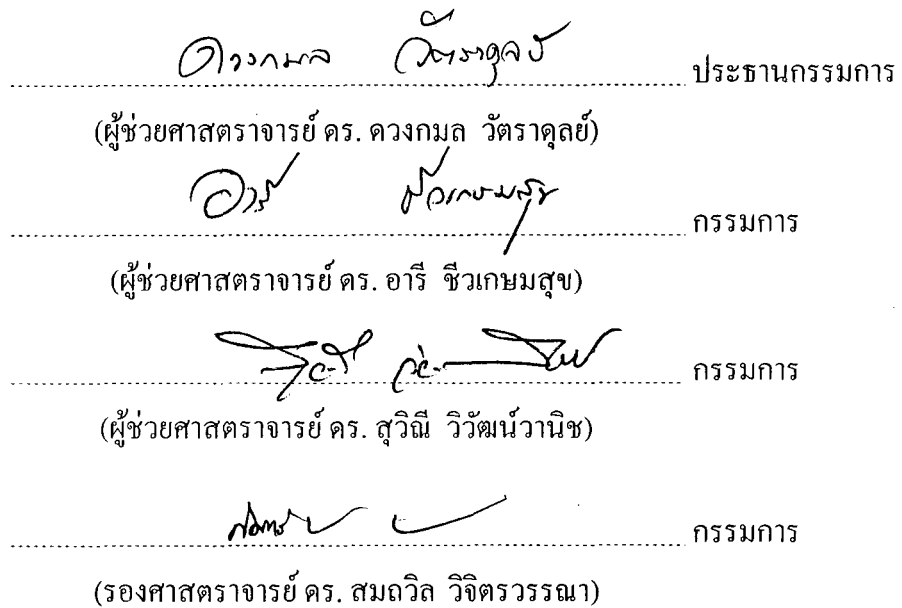 ดวงกมล วัตราดุลย์ ประธานกรรมการ
(ผู้ช่วยศาสตราจารย์ ดร. ดวงกมล วัตราดุลย์)
อารี ชีวเกษมสุข กรรมการ
(ผู้ช่วยศาสตราจารย์ ดร. อารี ชีวเกษมสุข)
กรรมการ
(ผู้ช่วยศาสตราจารย์ ดร. สุวิณี วิวัฒน์วานิช)
กรรมการ
(รองศาสตราจารย์ ดร. สมถวิล วิจิตรวรรณา)